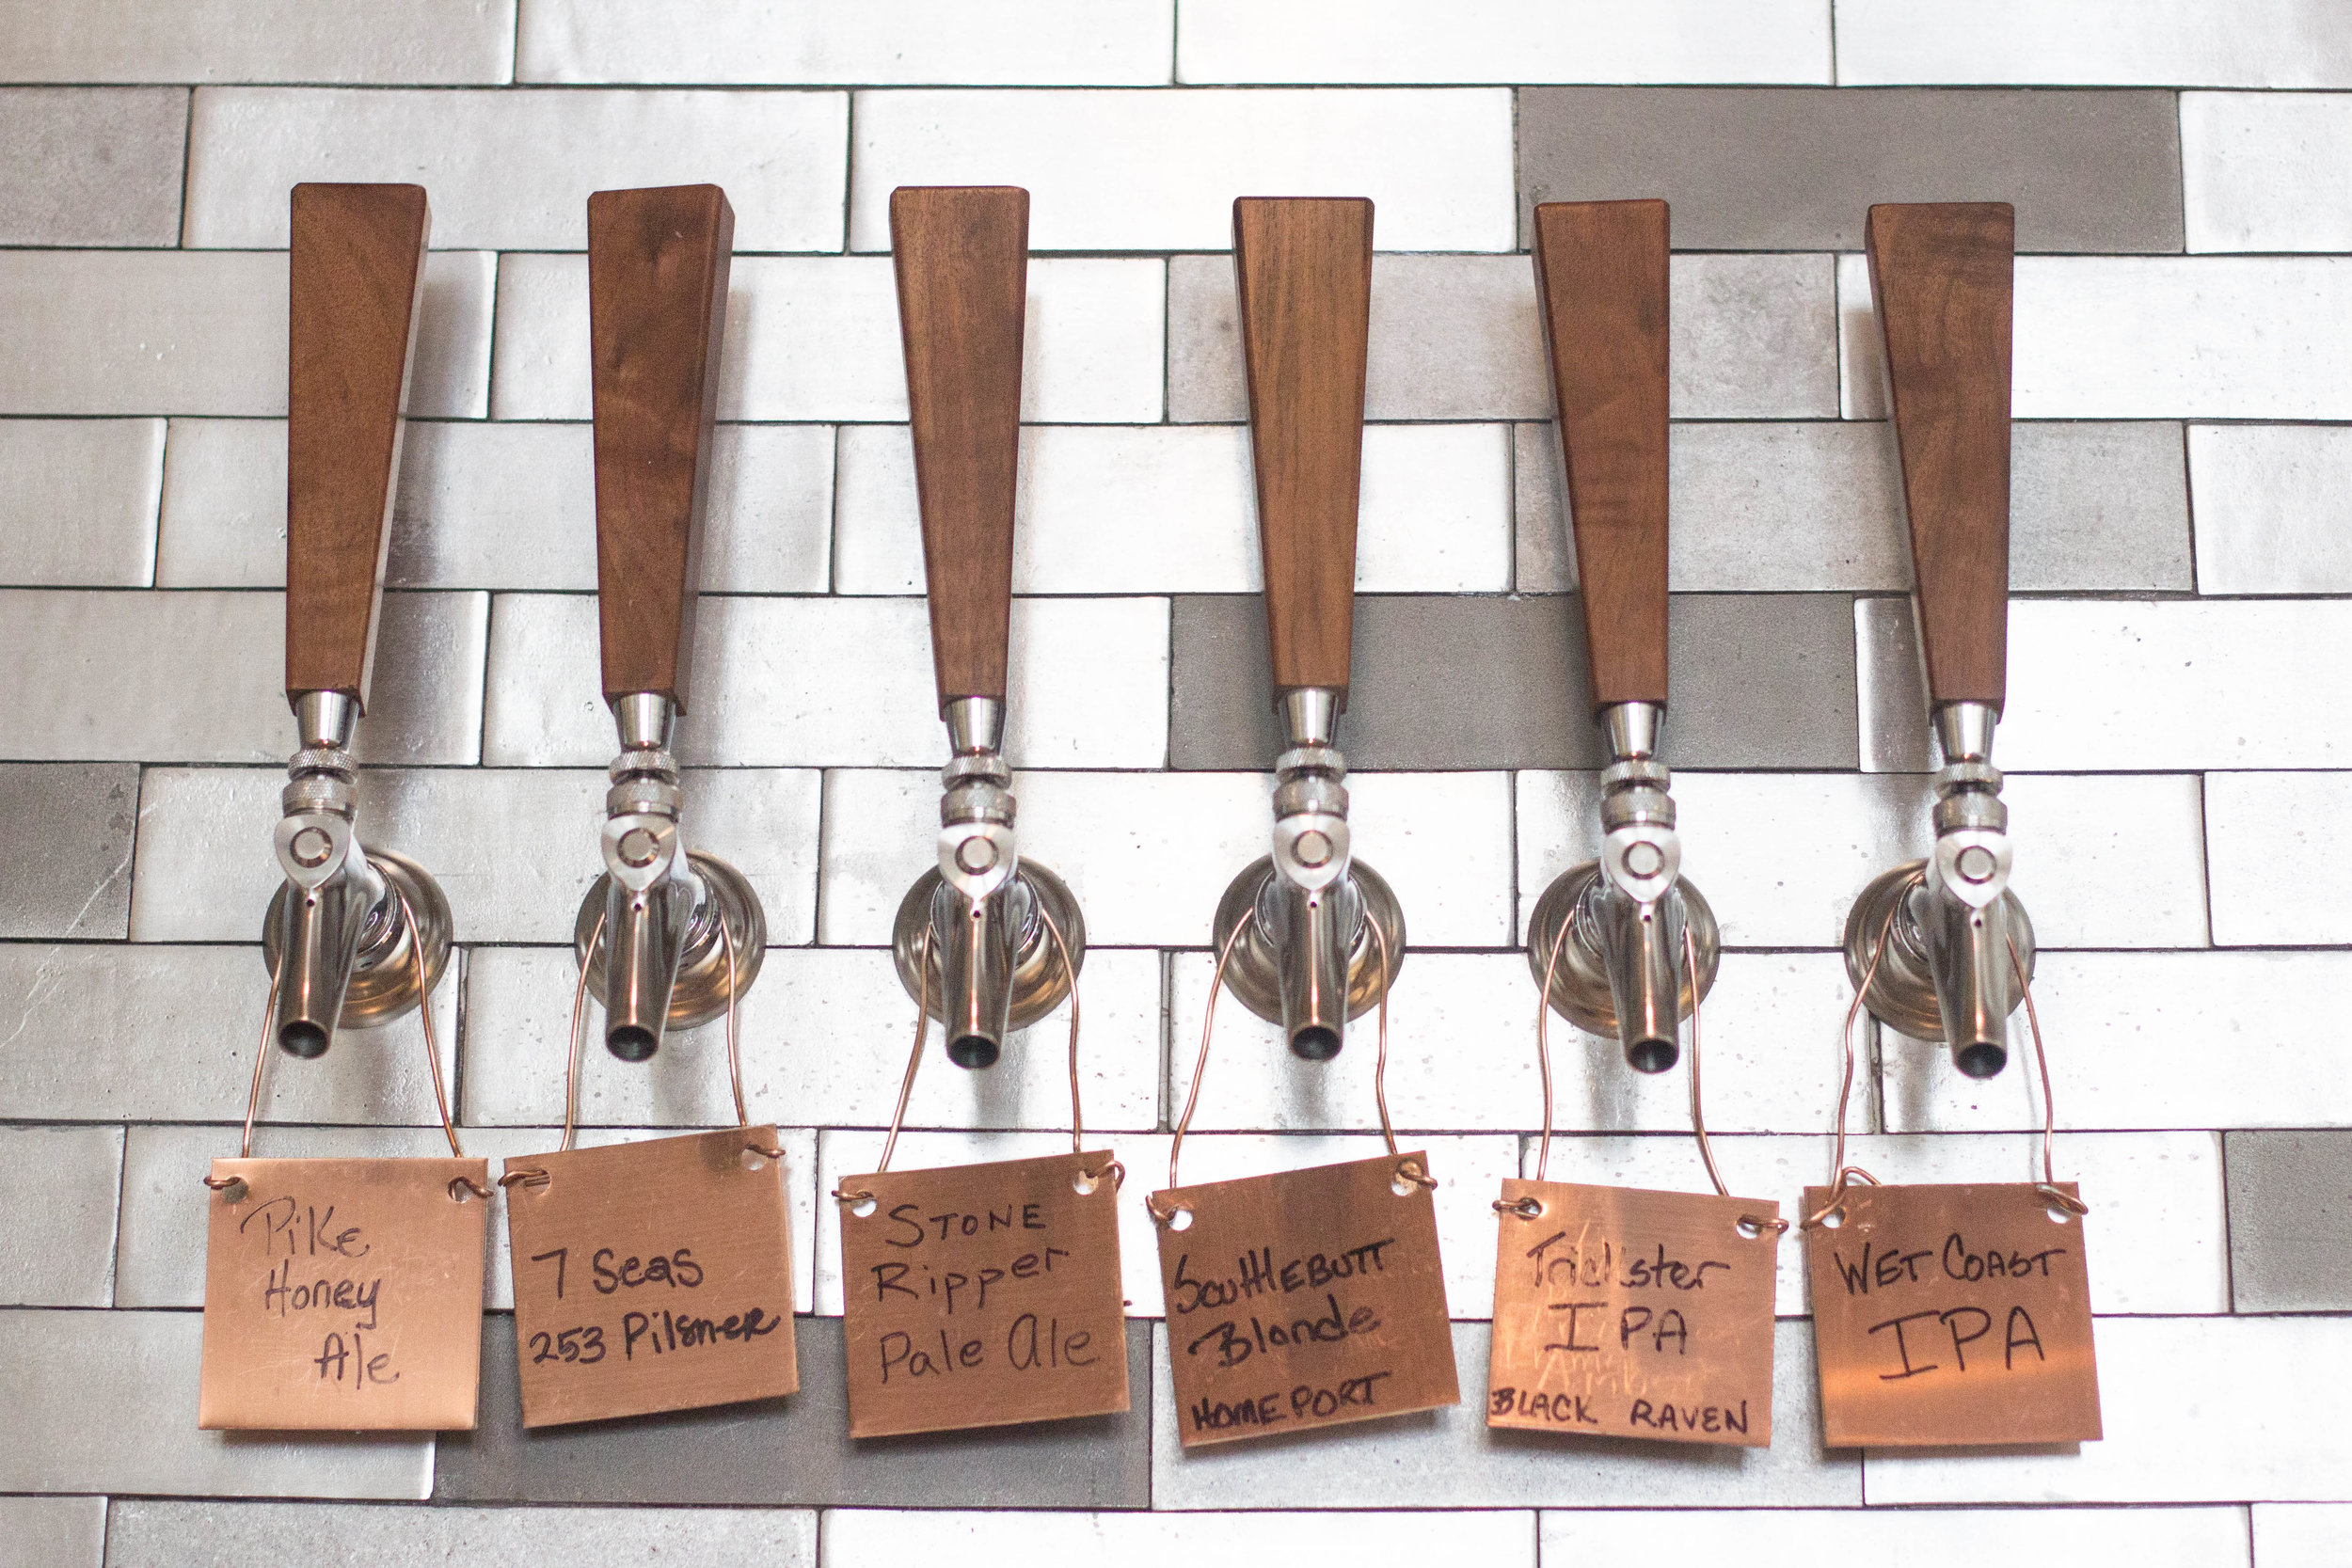 Pike
Honey
Ale
7 Seas
253 Pilsner
STONE
Ripper
Pale Ale
ScuttleBUTT
Blonde
HOMEPORT
Trickster
IPA
BLACK RAVEN
WET COAST
IPA